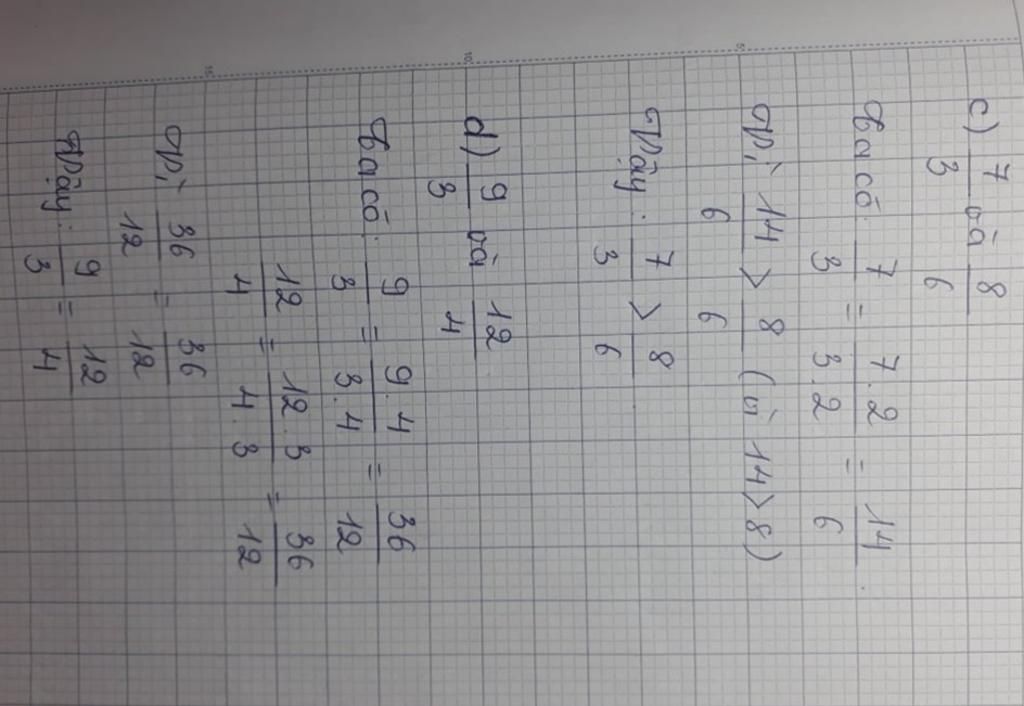 c) 7/3 và 8/6
Ta có: 7/3 = 7.2/3.2 = 14/6.
Vì 14/6 > 8/6 (vì 14 > 8)
Vậy: 7/3 > 8/6
d) 9/3 và 12/4
Ta có: 9/3 = 9.4/3.4 = 36/12
12/4 = 12.3/4.3 = 36/12
Vì 36/12 = 36/12
Vậy: 9/3 = 12/4
5
10
15